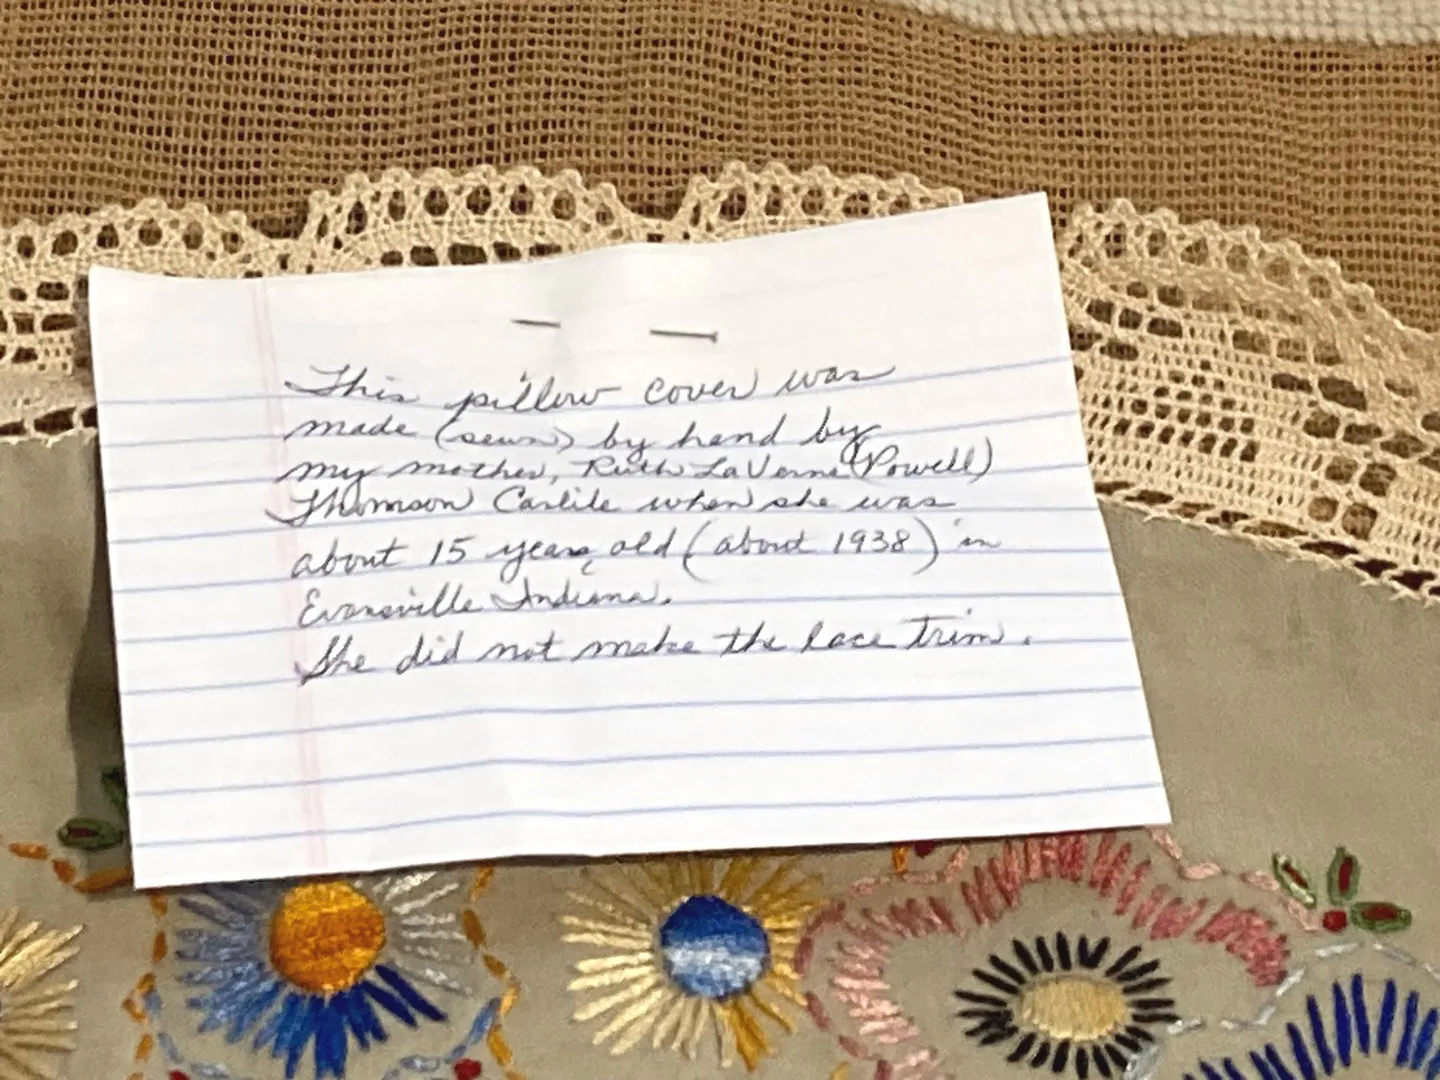 This pillow cover was
made (sewn) by hand by
my mother, Ruth LaVerne (Powell)
Thomson Carlile when she was
about 15 years old (about 1938) in
Evansville Indiana.
She did not make the lace trim.